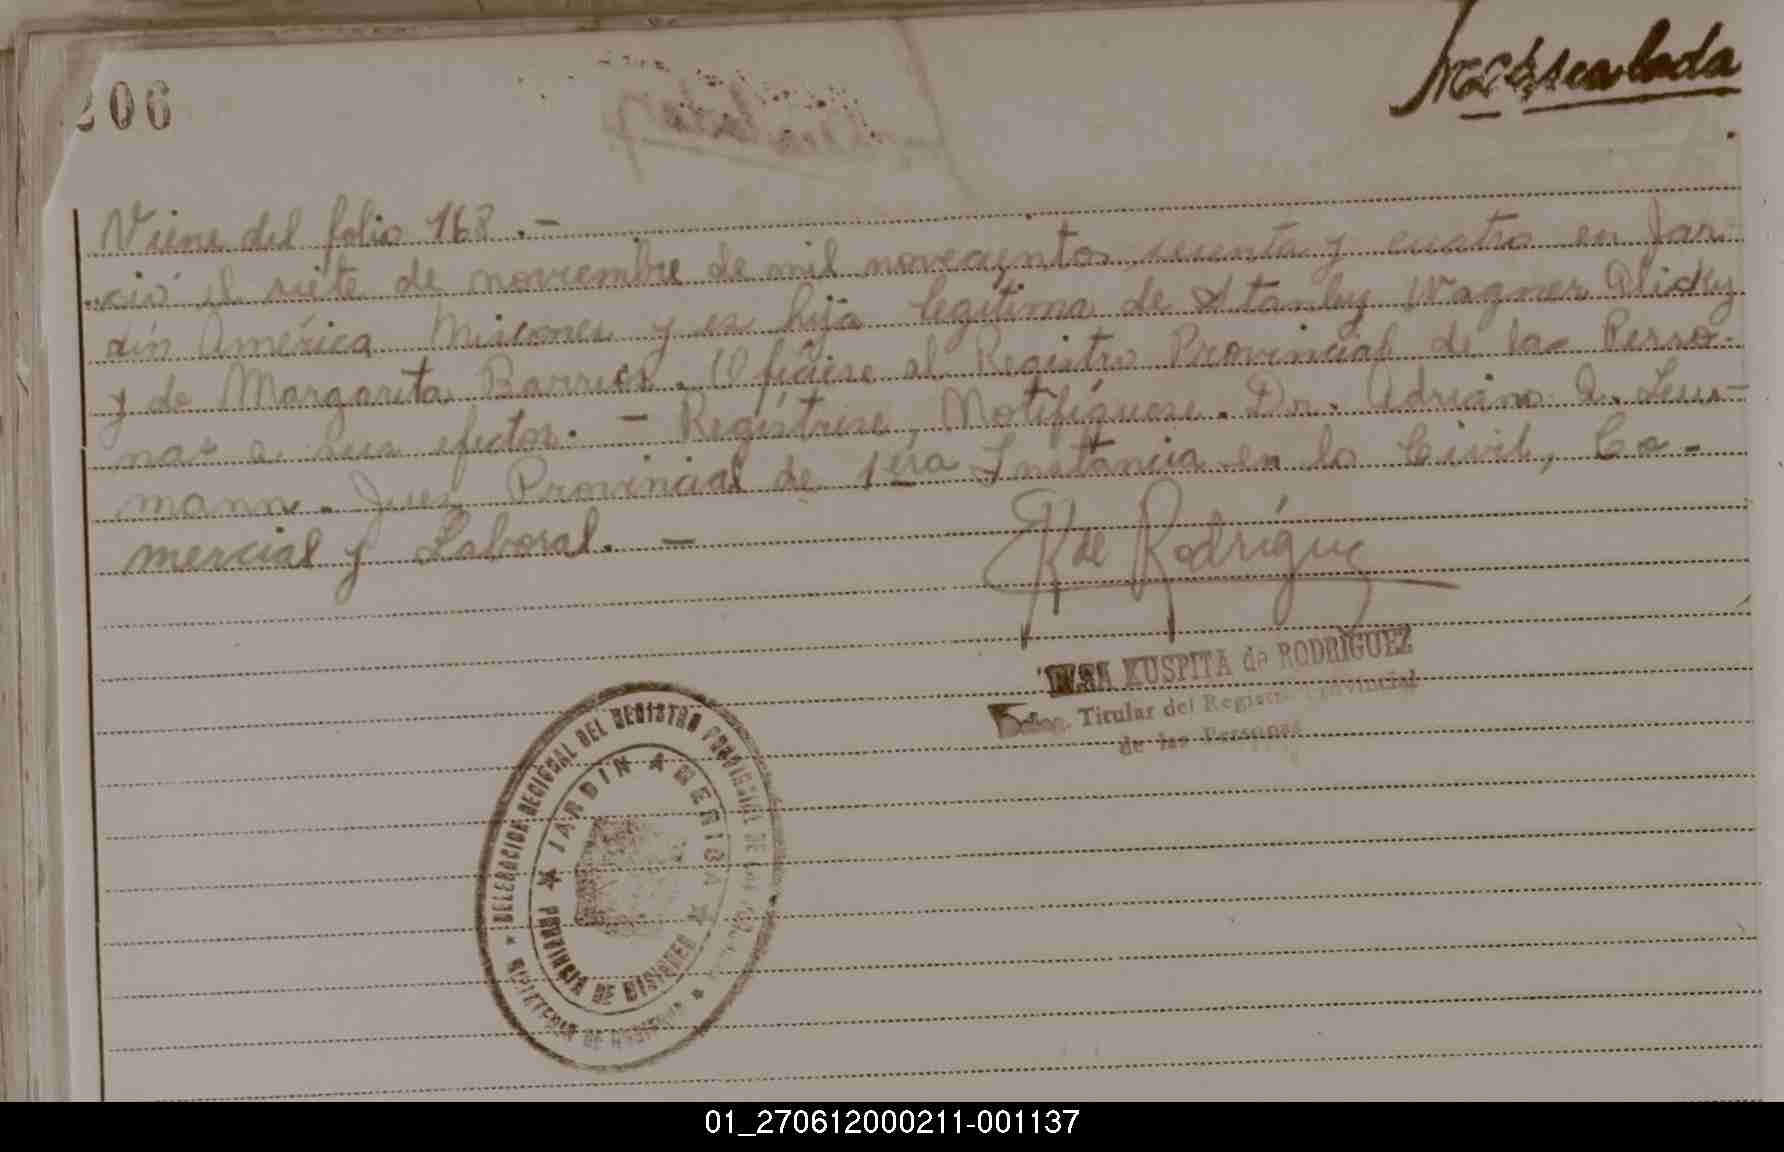 206
Viene del folio 168.-
ció el siete de noviembre de mil novecientos sesenta y cuatro en Jar-
dín América Misiones y es hija legítima de Stanley Wagner Dlicky
y de Margarita Barrios. Ofíciese al Registro Provincial de las Perso-
nas a sus efectos. - Regístrese, Notifíquese. Dr. Adriano A.
mann. Juez Provincial de 1era Instancia en lo Civil, Co-
mercial y Laboral. -
de Rodríguez
KUSPITA de RODRIGUEZ
Titular del Registro Provincial
de las Personas
DELEGACION REGIONAL DEL REGISTRO PROVINCIAL DE LAS
JARDIN AMERICA
PROVINCIA DE MISIONES
01_270612000211-001137